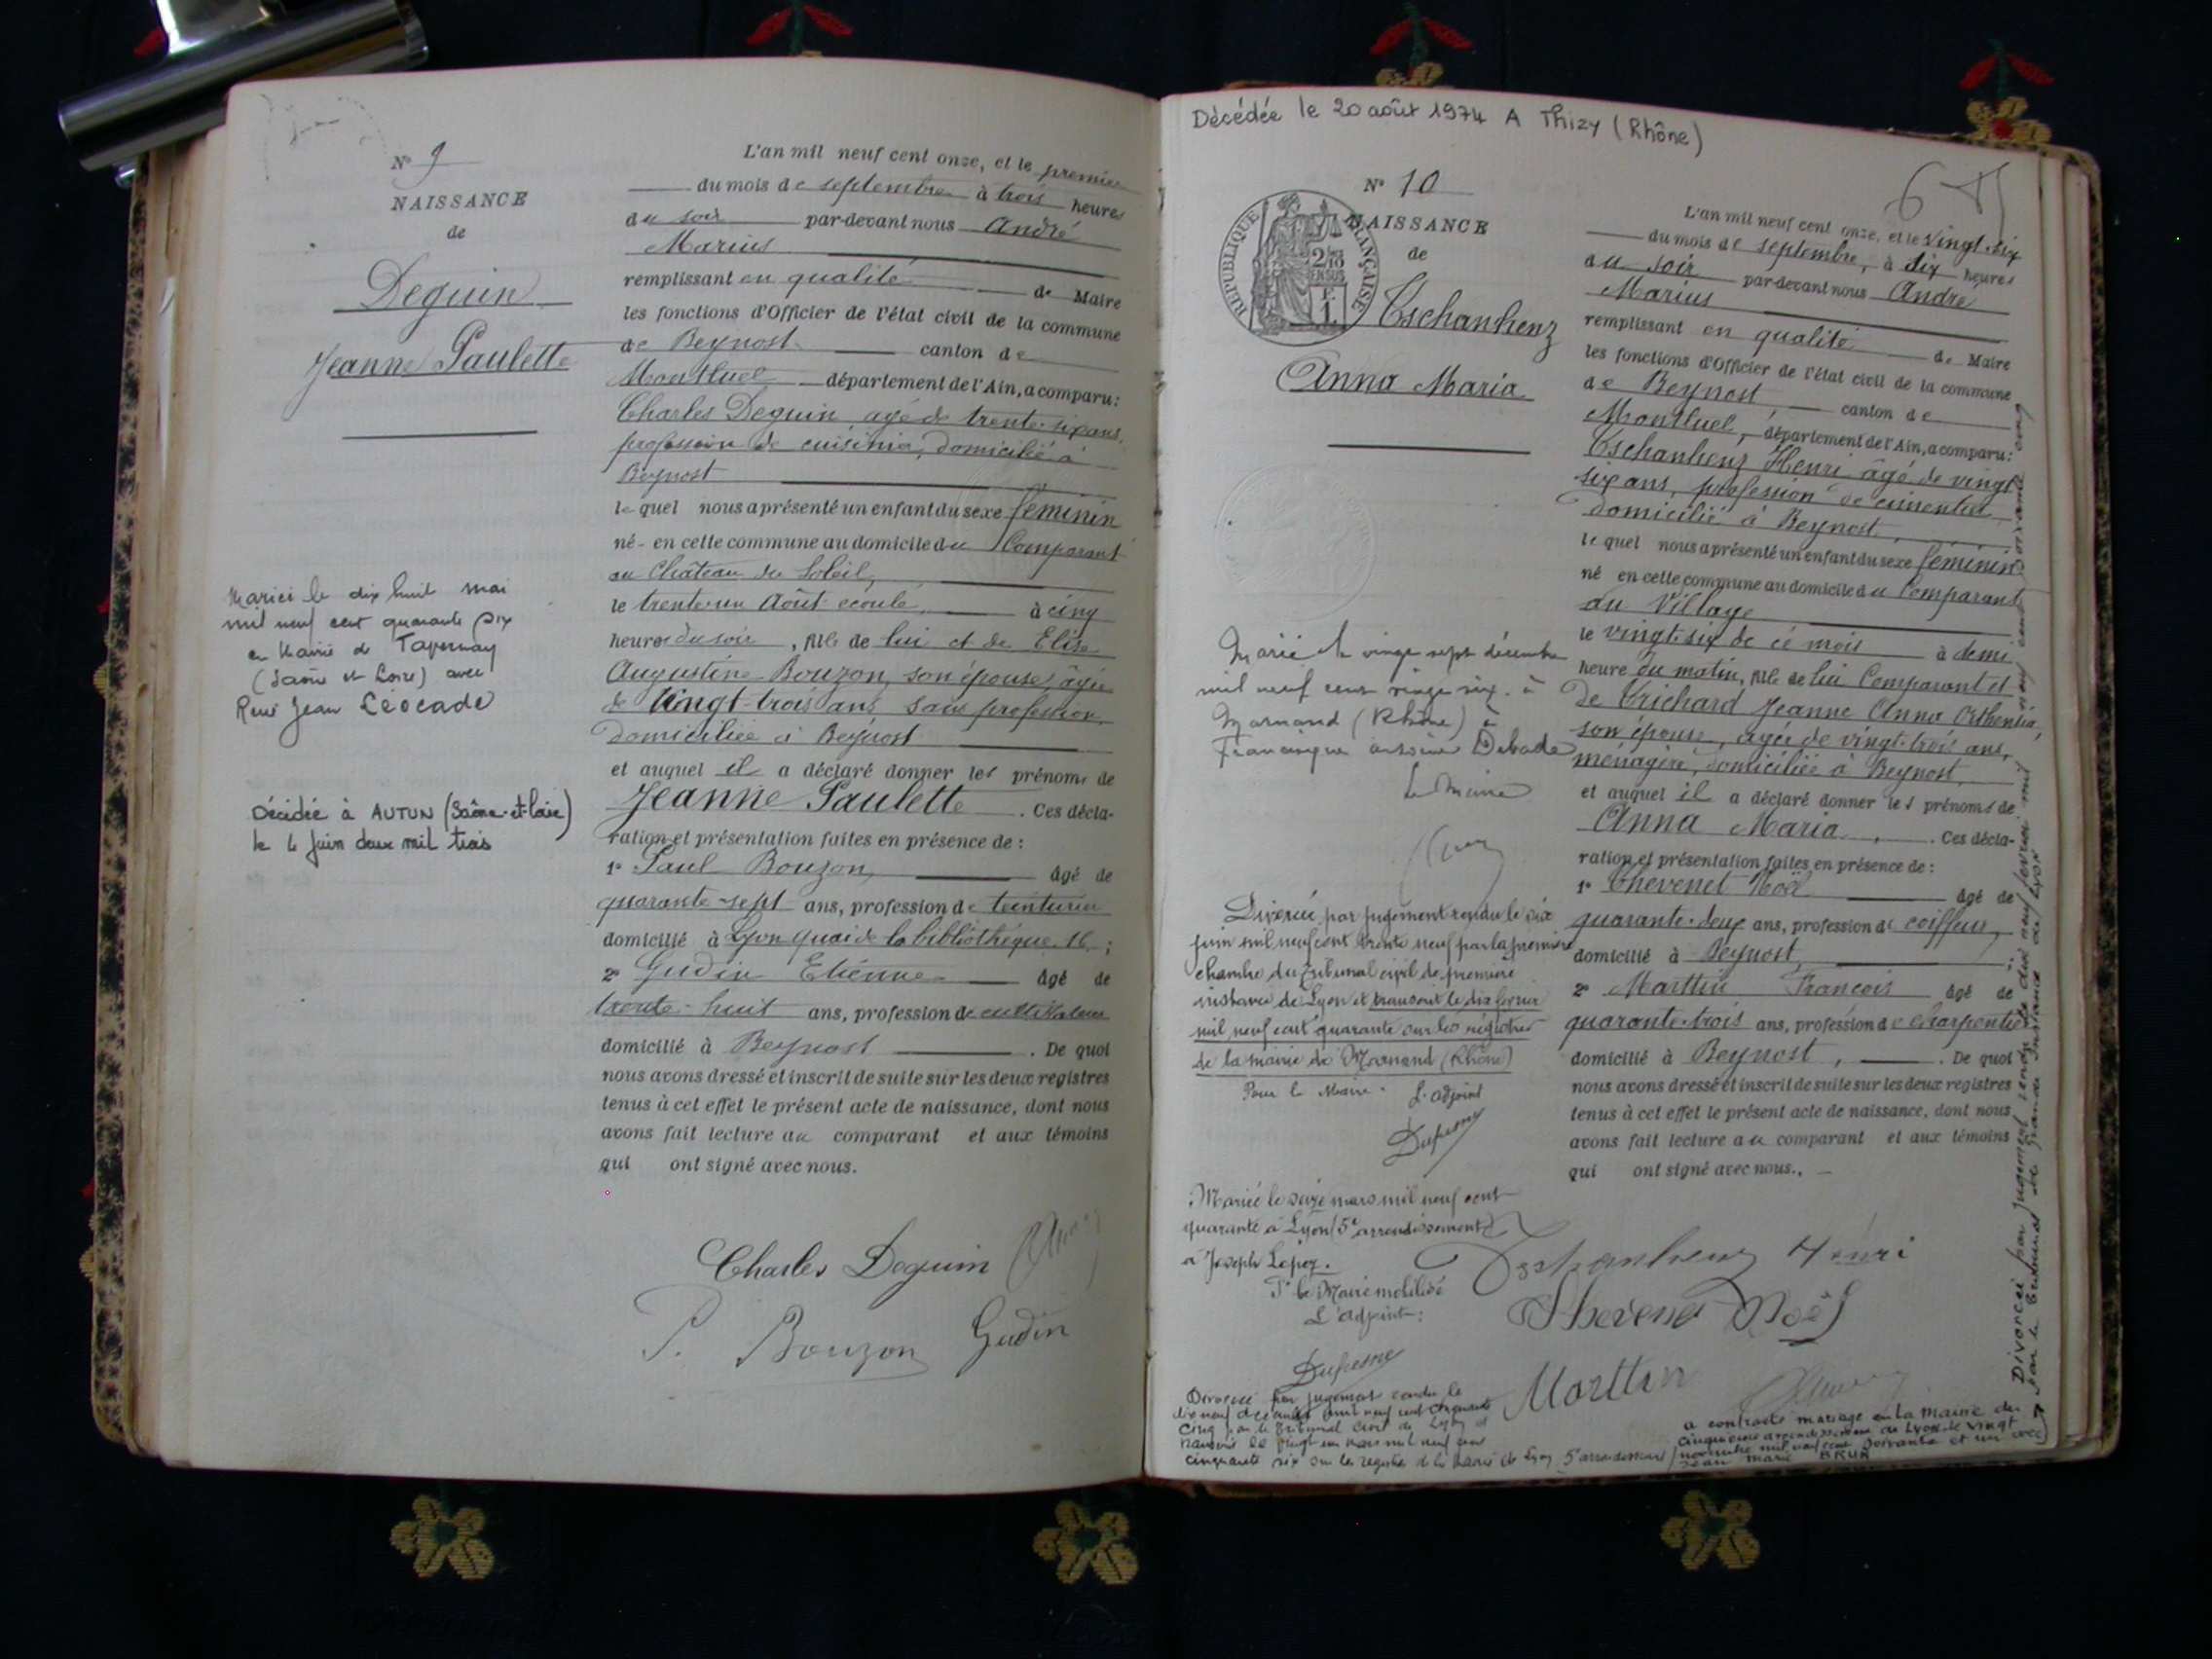 N° 9
NAISSANCE
de
Deguin
Jeanne Paulette
Mariée le dix huit mai
mil neuf cent quarante six
en Mairie de Tavernay
(Saône et Loire) avec
René Jean Léocade
Décédée à AUTUN (Saône-et-Loire)
le 6 juin deux mil trois
L'an mil neuf cent onze, et le premier
du mois de septembre à trois heures
du soir par-devant nous André
Marius
remplissant en qualité de Maire
les fonctions d'Officier de l'état civil de la commune
de Beynost canton de
Montluel département de l'Ain, a comparu:
Charles Deguin agé de trente-six ans,
profession de cuisinier, domicilié à
Beynost
lequel nous a présenté un enfant du sexe féminin
né - en cette commune au domicile du Comparant
au Château du Soleil,
le trente un Août écoulé, à cinq
heures du soir, fille de lui et de Elise
Augustine Bouzon, son épouse, âgée
de vingt-trois ans sans profession,
domiciliée à Beynost
et auquel il a déclaré donner les prénoms de
Jeanne Paulette. Ces décla-
ration et présentation faites en présence de :
1° Paul Bouzon, âgé de
quarante-sept ans, profession de teinturier
domicilié à Lyon quai de la bibliothèque 16 ;
2° Gudin Etienne âgé de
trente-huit ans, profession de cultivateur
domicilié à Beynost. De quoi
nous avons dressé et inscrit de suite sur les deux registres
tenus à cet effet le présent acte de naissance, dont nous
avons fait lecture au comparant et aux témoins
qui ont signé avec nous.
Charles Deguin
P. Bouzon Gudin
Décédée le 20 août 1974 A Thizy (Rhône)
N° 10
NAISSANCE
de
RÉPUBLIQUE FRANÇAISE
2/10 EN SUS
F. 1.
Tschanhenz
Anna Maria
Marié le vingt sept décembre
mil neuf cent vingt six à
Marnand (Rhône) à
Francisque Debade
Le Maire
Divorcée par jugement rendu le six
juin mil neuf cent trente neuf par la première
chambre du tribunal civil de première
instance de Lyon et transcrit le dix
mil neuf cent quarante sur les registres
de la mairie de Marnand (Rhône)
Pour le Maire : L'adjoint
Dufresne
Mariée le seize mars mil neuf cent
quarante à Lyon (5e arrondissement)
à Joseph Lopez.
Pr le Maire mobilisé
L'adjoint :
Dufresne
Divorcée par jugement rendu le
dix neuf mil neuf cent cinquante
cinq par le Tribunal civil de Lyon et
transcrit le vingt un mars mil neuf cent
cinquante six sur les registres de la Mairie de Lyon 5e arrondissement
L'an mil neuf cent onze, et le vingt-six
du mois de septembre, à six heures
du soir par-devant nous André
Marius
remplissant en qualité de Maire
les fonctions d'Officier de l'état civil de la commune
de Beynost, canton de
Montluel, département de l'Ain, a comparu:
Tschanhenz Henri âgé de vingt
six ans, profession de cimentier
domicilié à Beynost,
lequel nous a présenté un enfant du sexe féminin
né en cette commune au domicile du Comparant
au Village
le vingt-six de ce mois à demi
heure du matin, fille de lui Comparant et
de Trichard Jeanne Anna
son épouse, agée de vingt-trois ans,
ménagère, domiciliée à Beynost,
et auquel il a déclaré donner les prénoms de
Anna Maria. Ces décla-
ration et présentation faites en présence de :
1° Thevenet Noël âgé de
quarante-deux ans, profession de coiffeur,
domicilié à Beynost, ;
2° Marttin François âgé de
quarante-trois ans, profession de charpentier
domicilié à Beynost, . De quoi
nous avons dressé et inscrit de suite sur les deux registres
tenus à cet effet le présent acte de naissance, dont nous
avons fait lecture au comparant et aux témoins
qui ont signé avec nous.
Tschanhenz Henri
Thevenet Noël
Marttin
a contracté mariage en la mairie du
cinquième arrondissement de Lyon le vingt
novembre mil neuf cent soixante et un avec
Jean Marie BRUN
Divorcée par jugement rendu le dix neuf février mil neuf cent soixante cinq
par le tribunal de grande Instance de Lyon